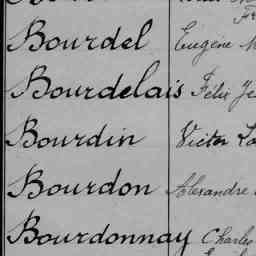 Bourdel Eugène
Bourdelais Félix
Bourdin Victor
Bourdon Alexandre
Bourdonnay Charles